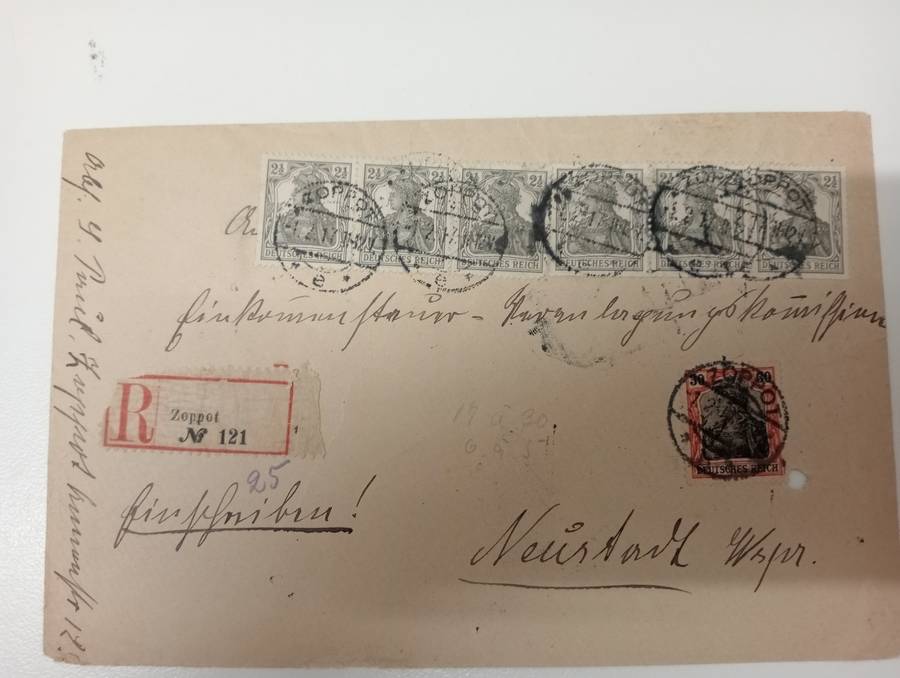 2½ 2½ 2½ 2½ 2½ 2½
DEUTSCHES REICH DEUTSCHES REICH DEUTSCHES REICH DEUTSCHES REICH DEUTSCHES REICH DEUTSCHES REICH
ZOPPOT ZOPPOT ZOPPOT ZOPPOT ZOPPOT
An
Einkommensteuer-Veranlagungskommission
30 30
ZOPPOT
DEUTSCHES REICH
R Zoppot
№ 121
25
Einschreiben!
Neustadt Wspr.
Zoppot